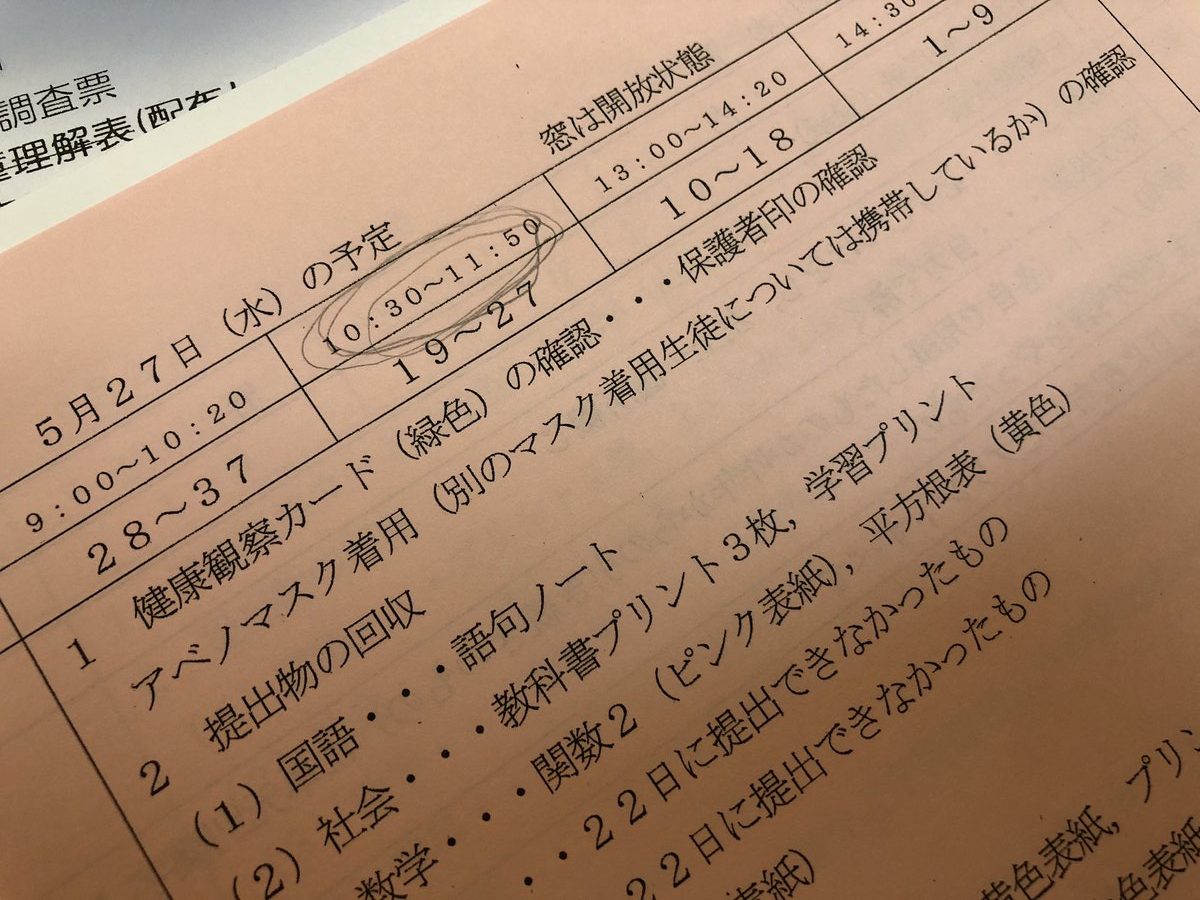 調査票
理解表(配布
5月27日（水）の予定
窓は開放状態
9：00～10：20 10：30～11：50 13：00～14：20 14：30
28～37 19～27 10～18 1～9
1 健康観察カード（緑色）の確認・・・保護者印の確認
アベノマスク着用（別のマスク着用生徒については携帯しているか）の確認
2 提出物の回収
（1）国語・・・語句ノート
（2）社会・・・教科書プリント3枚，学習プリント
数学・・・関数2（ピンク表紙），平方根表（黄色）
・・22日に提出できなかったもの
22日に提出できなかったもの
表紙） 黄色表紙，プリン
色表紙